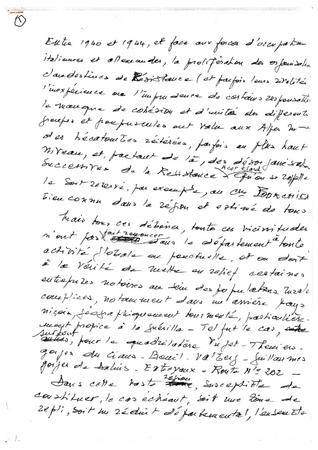 1
Entre 1940 et 1944, et face aux forces d'occupation
italiennes et allemandes, la prolifération des organisations
clandestines de Résistance (et parfois leur rivalité
l'inexpérience ou l'imprudence de certains responsables
le manque de cohésion et d'unité des différents
groupes et groupuscules ont valu aux Alpes M-mes
des hécatombes réitérées, parfois au plus haut
niveau, et, partant de là, des désorganisations
successives de la Résistance. Qu'on se rappelle
le sort réservé, par exemple, au
bien connu dans la région et estimé de tous
Mais tous ces déboires, toutes ces vicissitudes
n'ont pas fait renoncer dans le département à toute
activité globale ou ponctuelle, et on doit
à la vérité de mettre en relief certaines
entreprises notoires au sein des populations rurales
complices, notamment dans un arrière pays
niçois géographiquement tourmenté, particulière-
ment propice à la guérilla - Tel fut le cas,
surtout pour le quadrilatère Puget-Théniers-
gorges du Cians - Beuil - Valberg - Guillaumes
gorges de Daluis - Entrevaux - Route N° 202 -
Dans cette vaste région, susceptible de
constituer, le cas échéant, soit une zone de
repli, soit un réduit départemental, l'ensemble